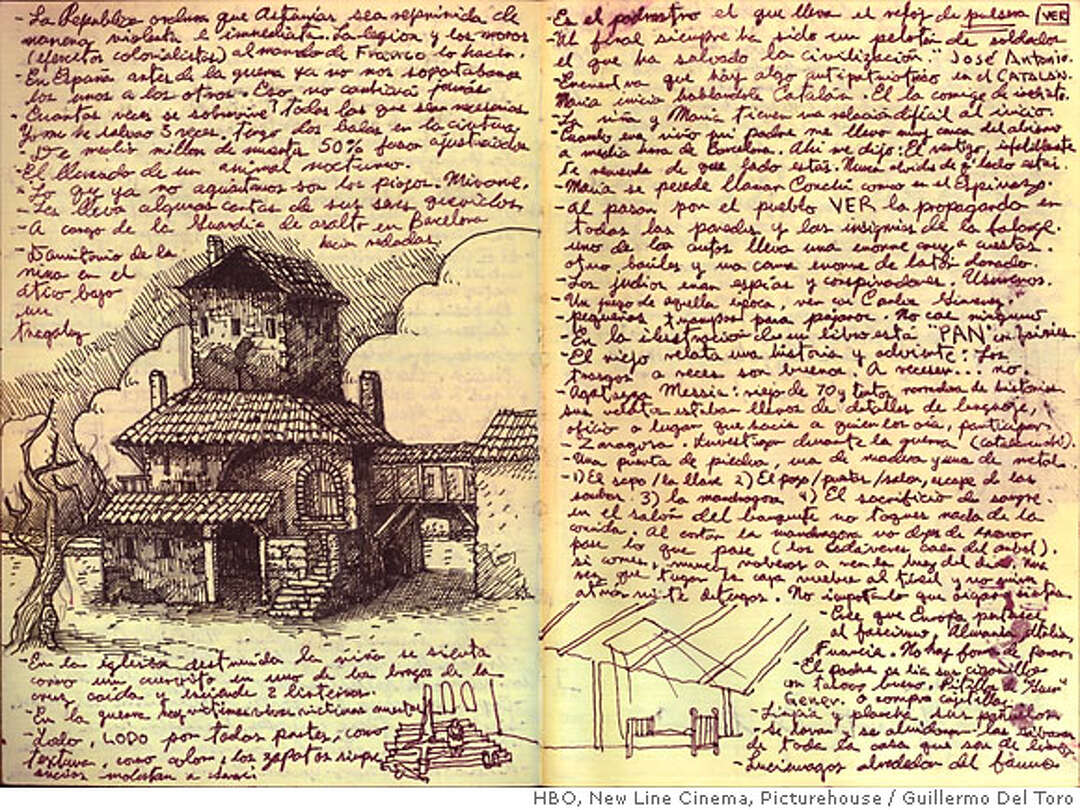 - La República ordena que Asturias sea reprimida de
manera violenta e inmediata. La legion y los moros
(ejercitos colonialistas) al mando de Franco lo hacen.
- En España antes de la guerra ya no nos soportabamos
los unos a los otros. Eso no cambiará jamás
- Cuantas veces se sobrevive? Todas las que sean necesarias
Yo me he salvao 3 veces. Tengo dos balas en la cintura
- De medio millon de muertos 50% fueron ajusticiados
- El llamado de un animal nocturno.
- Lo q ya no aguantamos son los piojos. Mirame.
- Les lleva algunas cartas de sus seres queridos
- A cargo de la Guardia de asalto en Barcelona
hacia redadas.
- Dormitorio de la
niña en el
ático bajo
un
tragaluz
- En la iglesia destruida la niña se sienta
como un cuervito en uno de los brazos de la
cruz caida y enciende 2
- En la guerra hay victimas vivas victimas muertas
- Lodo, LODO por todas partes, como
textura, como color, los zapatos siempre
sucios molestan a
- Es el padrastro el que lleva el reloj de pulsera VER
- Al final siempre ha sido un pelotón de soldados
el que ha salvado la civilización. JOSÉ ANTONIO.
- Encuentra que hay algo antipatriotico en el CATALÁN.
Maria inicia hablandole Catalán. El la corrige de
- La niña y Maria tienen una relación dificil al inicio.
- Cuando era niño mi padre me llevo muy cerca del abismo
a media hora de Barcelona. Ahi me dijo: El vertigo,
te recuerda de que lado estas. Nunca olvides de q lado estas.
- Maria se puede llamar Conchi como en el Espinazo.
- Al pasar por el pueblo VER la propaganda en
todas las paredes y las insignias de la falange.
uno de los autos lleva una enorme cruz a cuestas.
otro, baúles y una cama enorme de latón dorado.
- Los judios eran espias y conspiradores. Usureros.
- Un juego de aquella época, ver con Carlos Gimenez.
- pequeñas trampas para pajaros. No cae ninguno
- En la ilustración de un libro está "PAN" in fairies.
- El viejo relata una historia y advierte: Los
trasgos a veces son buenos. A veces... no.
- Messia: viejo de 70 y tantos narrador de historias
sus relatos estaban llenos de detalles de lenguaje,
oficio o lugar que hacia a quien los oia, participar
- Zaragoza. Investigar durante la guerra
- Una puerta de piedra, una de madera y una de metal.
- 1) El sapo/la llave 2) El pozo/puertas/salon, escape de las
3) la mandragora 4) El sacrificio de sangre.
en el salón del banquete no toques nada de la
comida. Al cortar la mandragora no dejes de
pase lo que pase (los cadáveres caen del arbol).
si comes, nunca volveras a ver la luz del dia.
que tengas la caja vuelve al y no mires
atrás ni te detengas. No importa lo que oigas
- Cree que Europa pertenece
al fascismo, Alemania, Italia,
Francia. No hay forma de parar.
- El padre se lia sus cigarrillos
con tabaco bueno.
Gener. o compra cajetillas.
- Limpia y plancha sus pañuelos
- Se lavan y se almidonan las sábanas
de toda la casa que son de lino
- Luciernagas alrededor del fauno
HBO, New Line Cinema, Picturehouse / Guillermo Del Toro